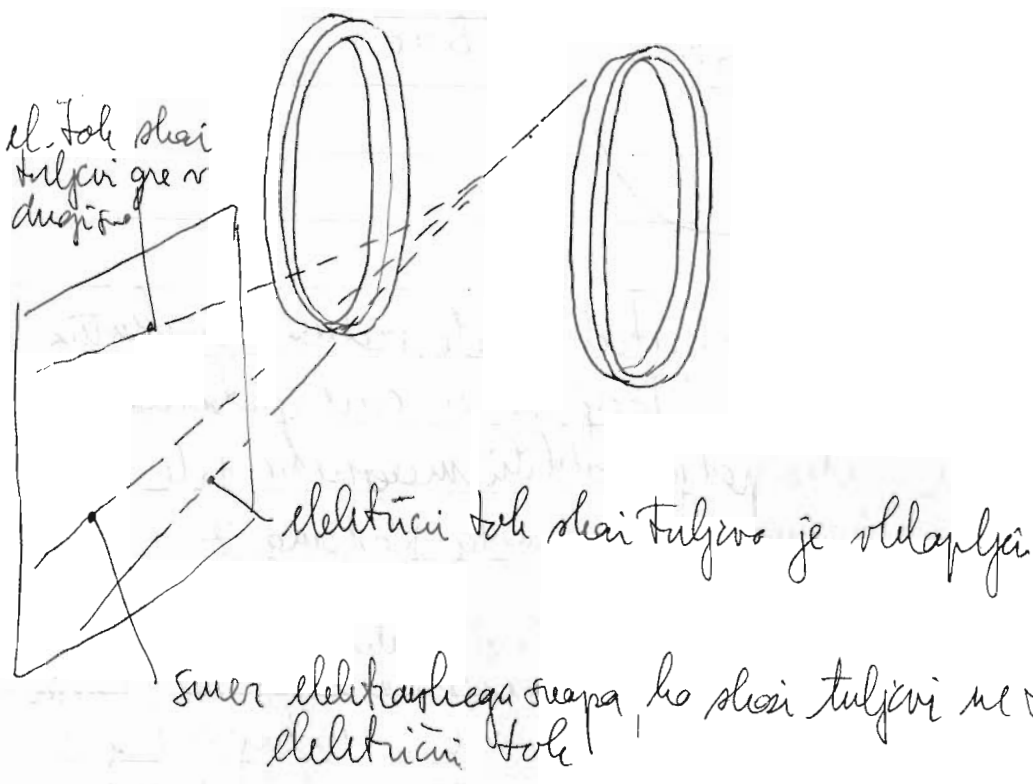 el. tok skozi
tuljavi gre v
drugi smer
električni tok skozi tuljavo je vklopljen
smer elektronskega snopa, ko skozi tuljavi ne
električni tok